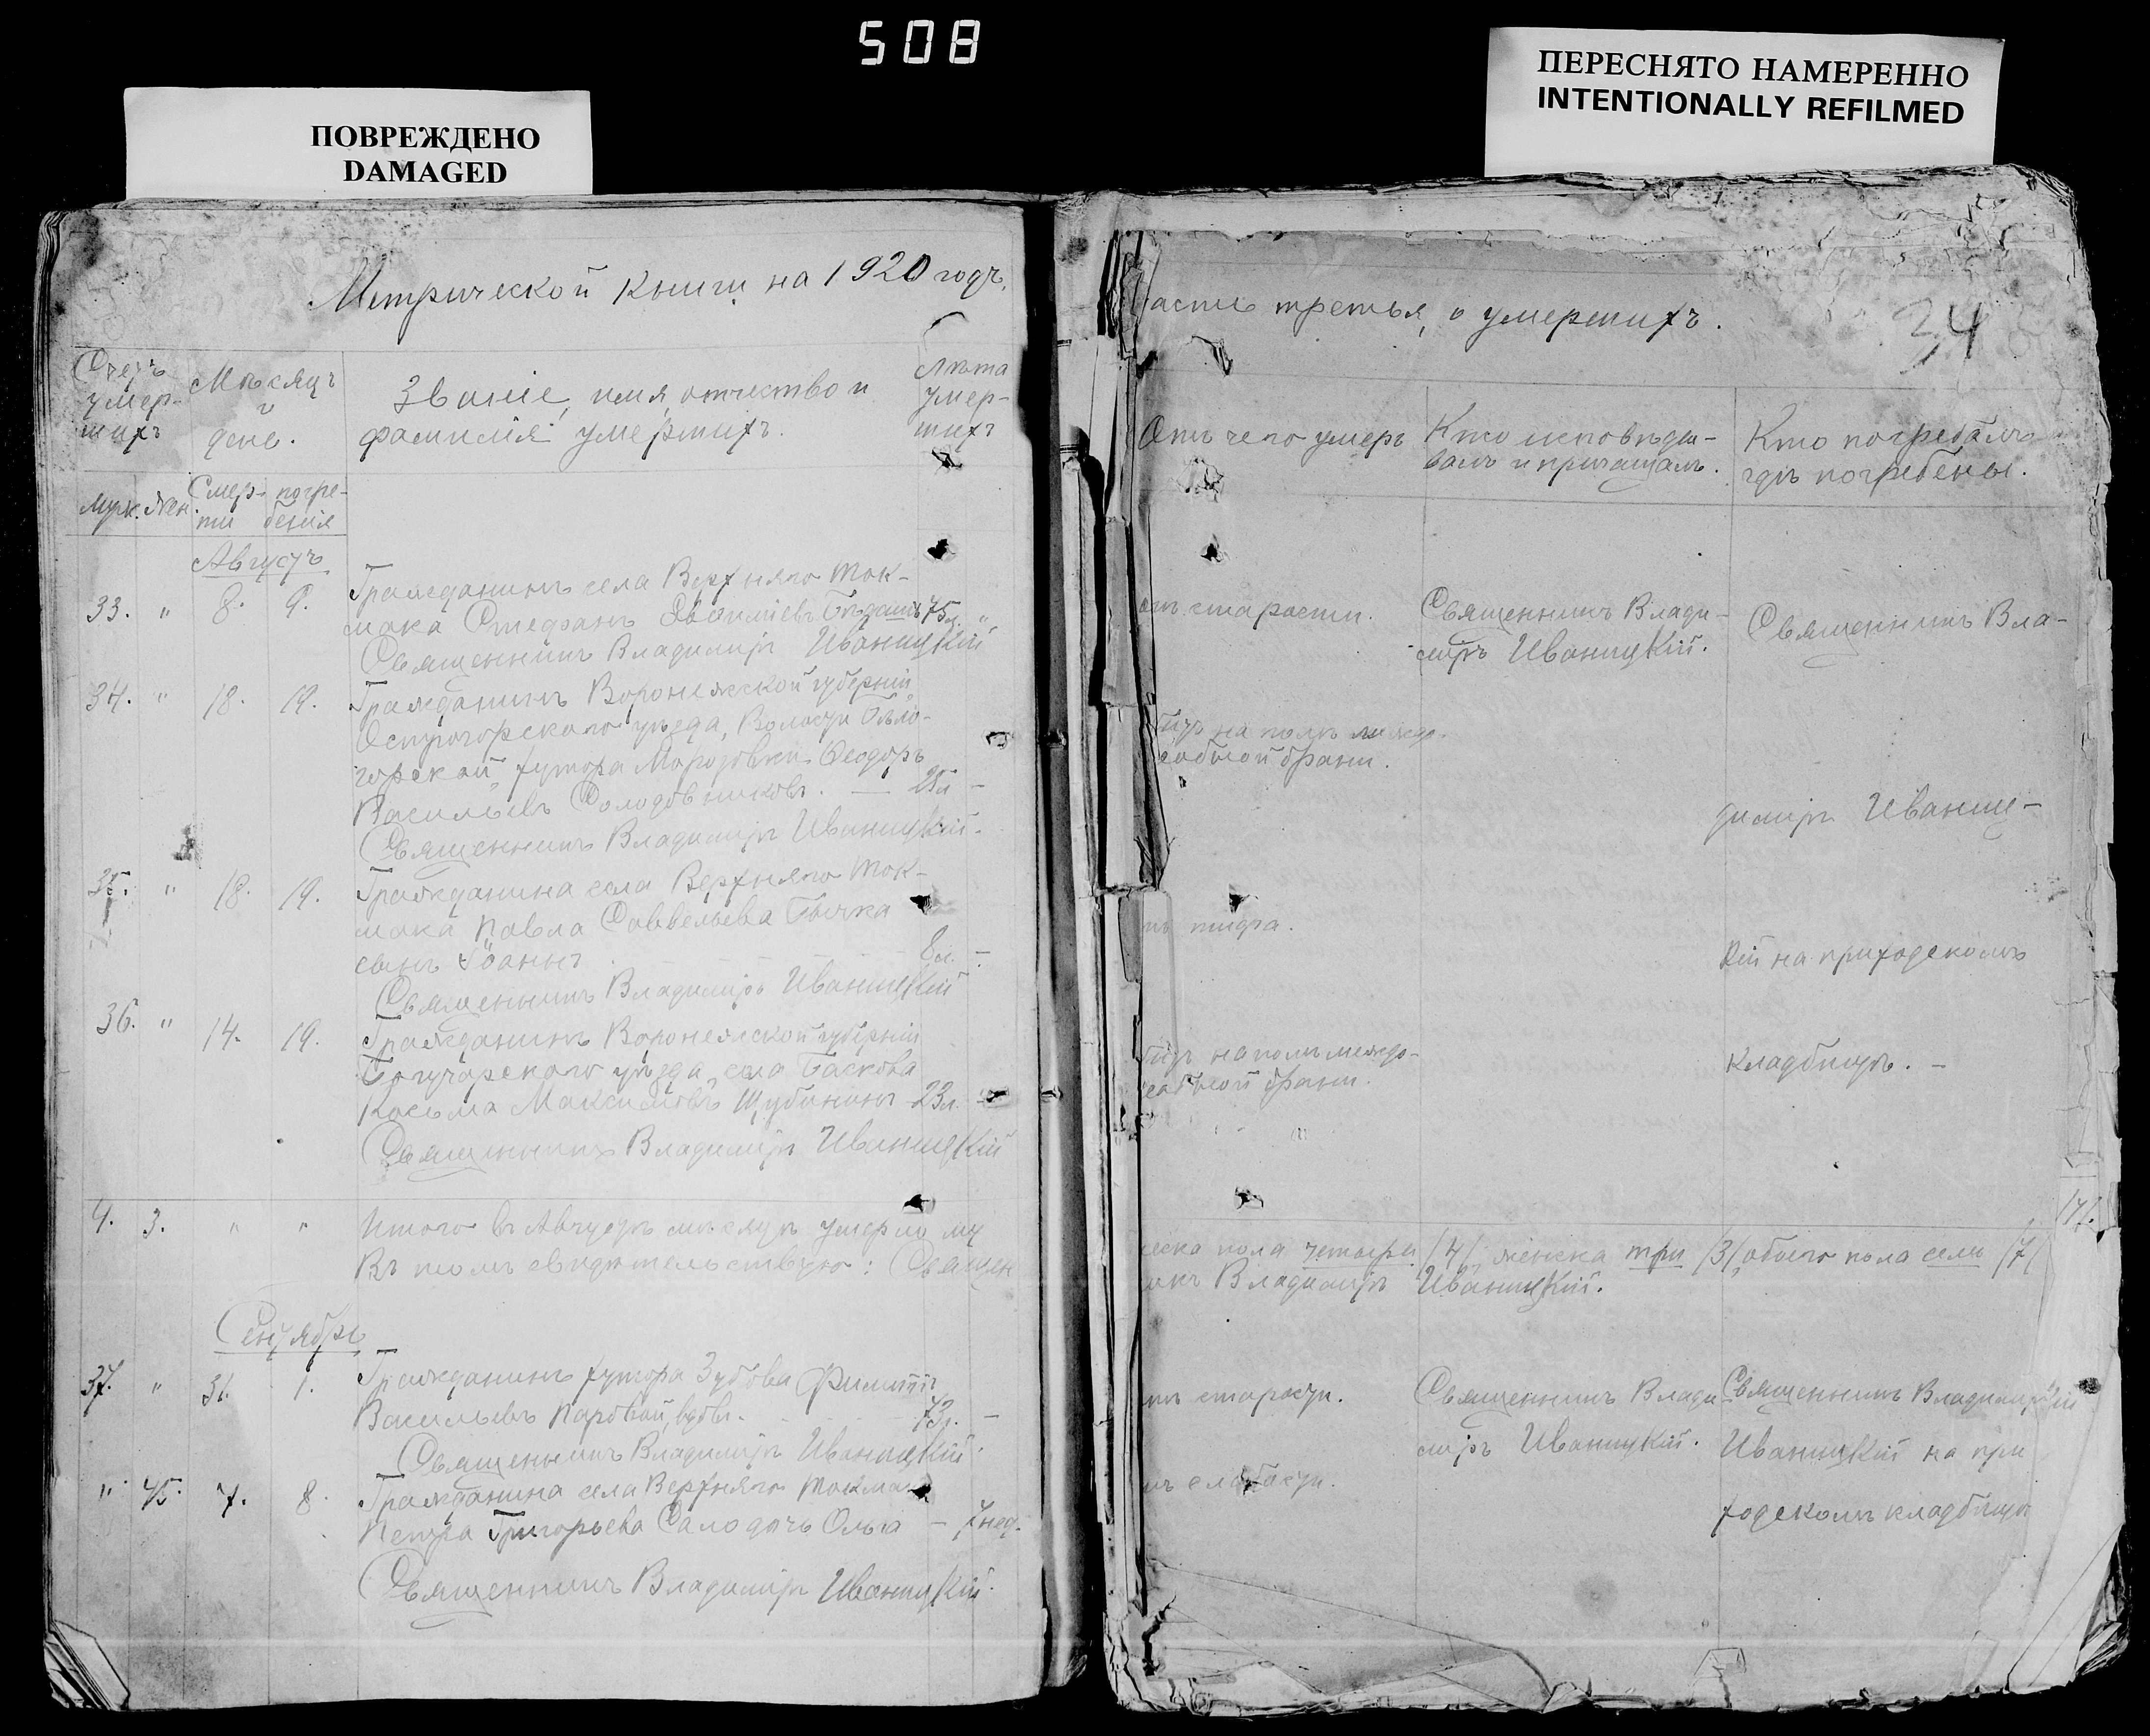 508
ПОВРЕЖДЕНО
DAMAGED
ПЕРЕСНЯТО НАМЕРЕННО
INTENTIONALLY REFILMED
Метрической книги на 1920 годъ,
Счетъ умер-шихъ
Мѣсяцъ и день.
Званіе, имя, отчество и
фамилія умершихъ.
Лѣта умер-шихъ
Муж. Жен.
Смер-ти
погре-бенія
Августъ
33. " 8. 9.
Гражданинъ села Верхняго Ток-
мака Стефанъ 75л. "
Священникъ Владиміръ Иваницкій
34. " 18. 19.
Гражданинъ Воронежской губерніи
Острогорскаго уѣзда, Волости Бѣло-
горской, хутора Морозовки Феодоръ
Васильевъ Солодовниковъ. — 25л —
Священникъ Владиміръ Иваницкій.
35. " 18. 19.
Гражданина села Верхняго Ток-
мака Павла Савельева Бычка
сынъ Іоаннъ 8л. -
Священникъ Владиміръ Иваницкій
36. " 14. 19.
Гражданинъ Воронежской губерніи
Богучарскаго уѣзда, села
Косьма Максимовъ Шубинъ 23л.
Священникъ Владиміръ Иваницкій
4. 3. " "
Итого въ Августѣ мѣсяцѣ умерло му
Въ томъ свидѣтельствую: Священ
Сентябрь
37. " 31. 1.
Гражданинъ хутора Зубова Филиппъ
Васильевъ вдовъ. 73л. —
Священникъ Владиміръ Иваницкій.
" 45. 7. 8.
Гражданина села Верхняго Токма
Петра Григорьева Ольга — 7 нед.
Священникъ Владиміръ Иваницкій.
асть третья, о умершихъ.
34
Отъ чего умеръ
Кто исповѣды-
валъ и причащалъ.
Кто погребалъ
гдѣ погребены.
отъ старости.
Священникъ Влади-
міръ Иваницкій.
Священникъ Вла-
битъ на полѣ междо-
собной брани.
диміръ Иваниц-
тифа.
кій на приходскомъ
битъ на полѣ междо-
собной брани.
кладбищѣ. —
171.
еска пола четыре /4/, женска три /3/, обоего пола семь /7/
икъ Владиміръ Иваницкій.
старости.
Священникъ Влади
міръ Иваницкій.
Священникъ Владиміръ
Иваницкій на при
ходскомъ кладбищѣ
слабости.